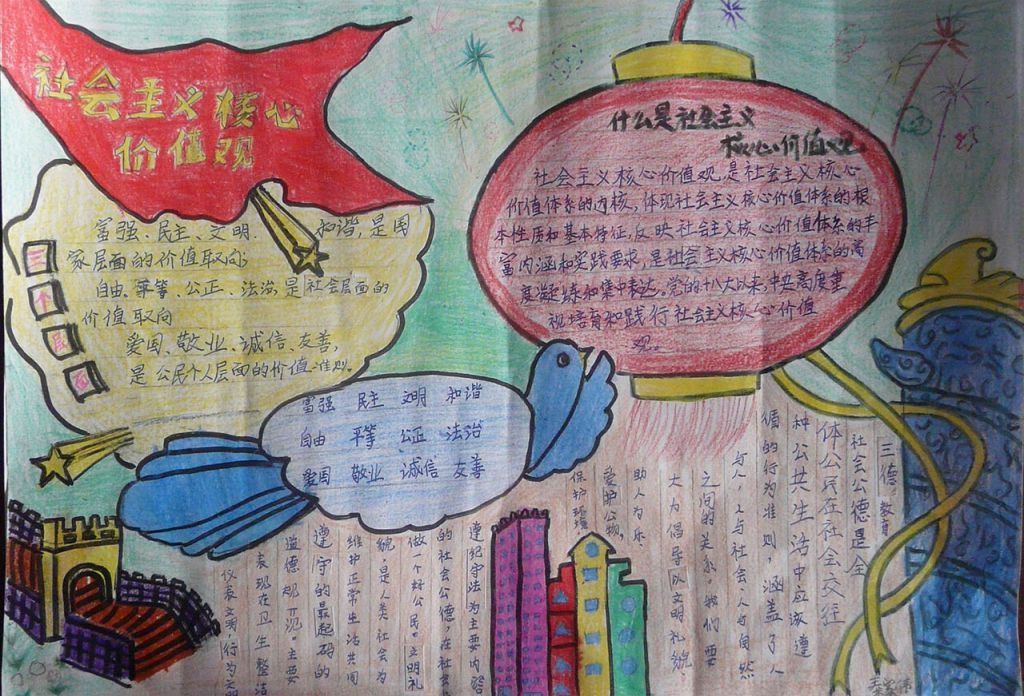 社会主义核心
价值观
富强、民主、文明、和谐,是国
家层面的价值取向;
自由、平等、公正、法治,是社会层面的
价值取向
爱国、敬业、诚信、友善,
是公民个人层面的价值准则。
什么是社会主义
核心价值观
社会主义核心价值观是社会主义核心
价值体系的内核,体现社会主义核心价值体系的根
本性质和基本特征,反映社会主义核心价值体系的丰
富内涵和实践要求,是社会主义核心价值体系的高
度凝练和集中表达。党的十八大以来,中央高度重
视培育和践行社会主义核心价值
观。
富强 民主 文明 和谐
自由 平等 公正 法治
爱国 敬业 诚信 友善
三德教育
社会公德是全
体公民在社会交往
种公共生活中应该遵
循的行为准则,涵盖了人
与人,人与社会,人与自然
之间的关系。我们要
大力倡导以文明礼貌、
助人为乐、
爱护公物,
保护环境
遵纪守法为主要内容
的社会公德,在社
做一个好公民。文明礼
貌,是人类社会为
维护正常生活共同
遵守的最起码的
道德规范。主要
表现在卫生整洁
仪表文明,行为文明